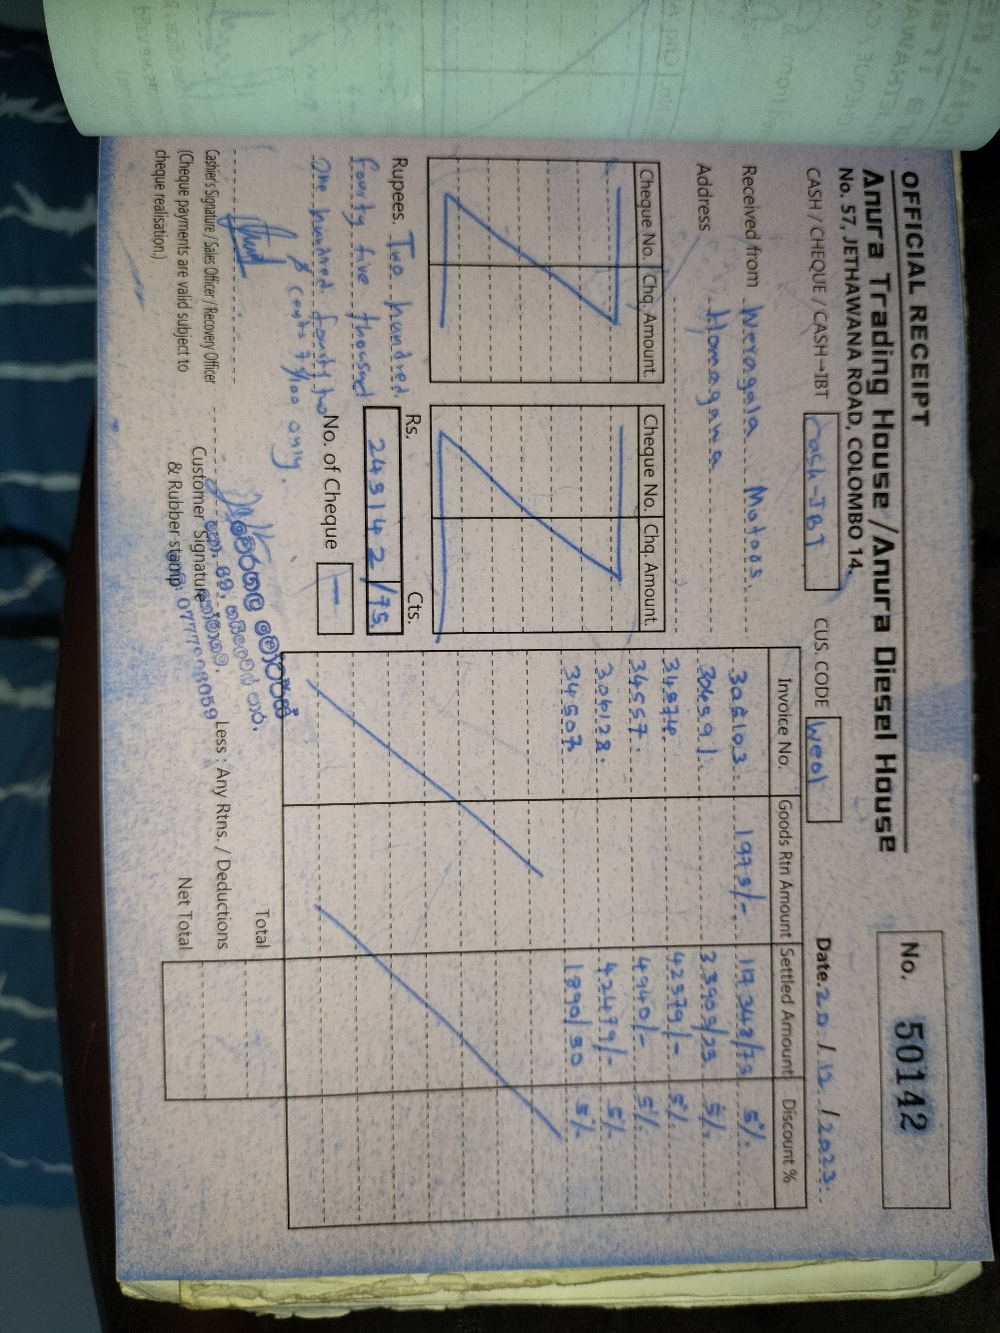 OFFICIAL RECEIPT
No. 50142
Anura Trading House / Anura Diesel House
No. 57, JETHAWANA ROAD, COLOMBO 14.
CASH / CHEQUE / CASH→IBT Cash-IBT CUS. CODE We01 Date. 20 / 12 / 2023.
Received from Weragala Motors.
Address Homagama
Cheque No. Chq. Amount. Cheque No. Chq. Amount.
Invoice No. Goods Rtn Amount Settled Amount Discount %
305103 1975/- 117348/75 5%
5%
42379/- 5%
34557. 4940/- 5%
306128. 42479/- 5%
34507 5%
Rupees. Two hundred
fourty five thousad
One hundred fourty two
& cents 75/100 only.
Rs. Cts.
245142 /75
No. of Cheque –
Total
Less : Any Rtns. / Deductions
Net Total
Cashier's Signature / Sales Officer / Recovery Officer
(Cheque payments are valid subject to
cheque realisation.)
Customer Signature
& Rubber stamp